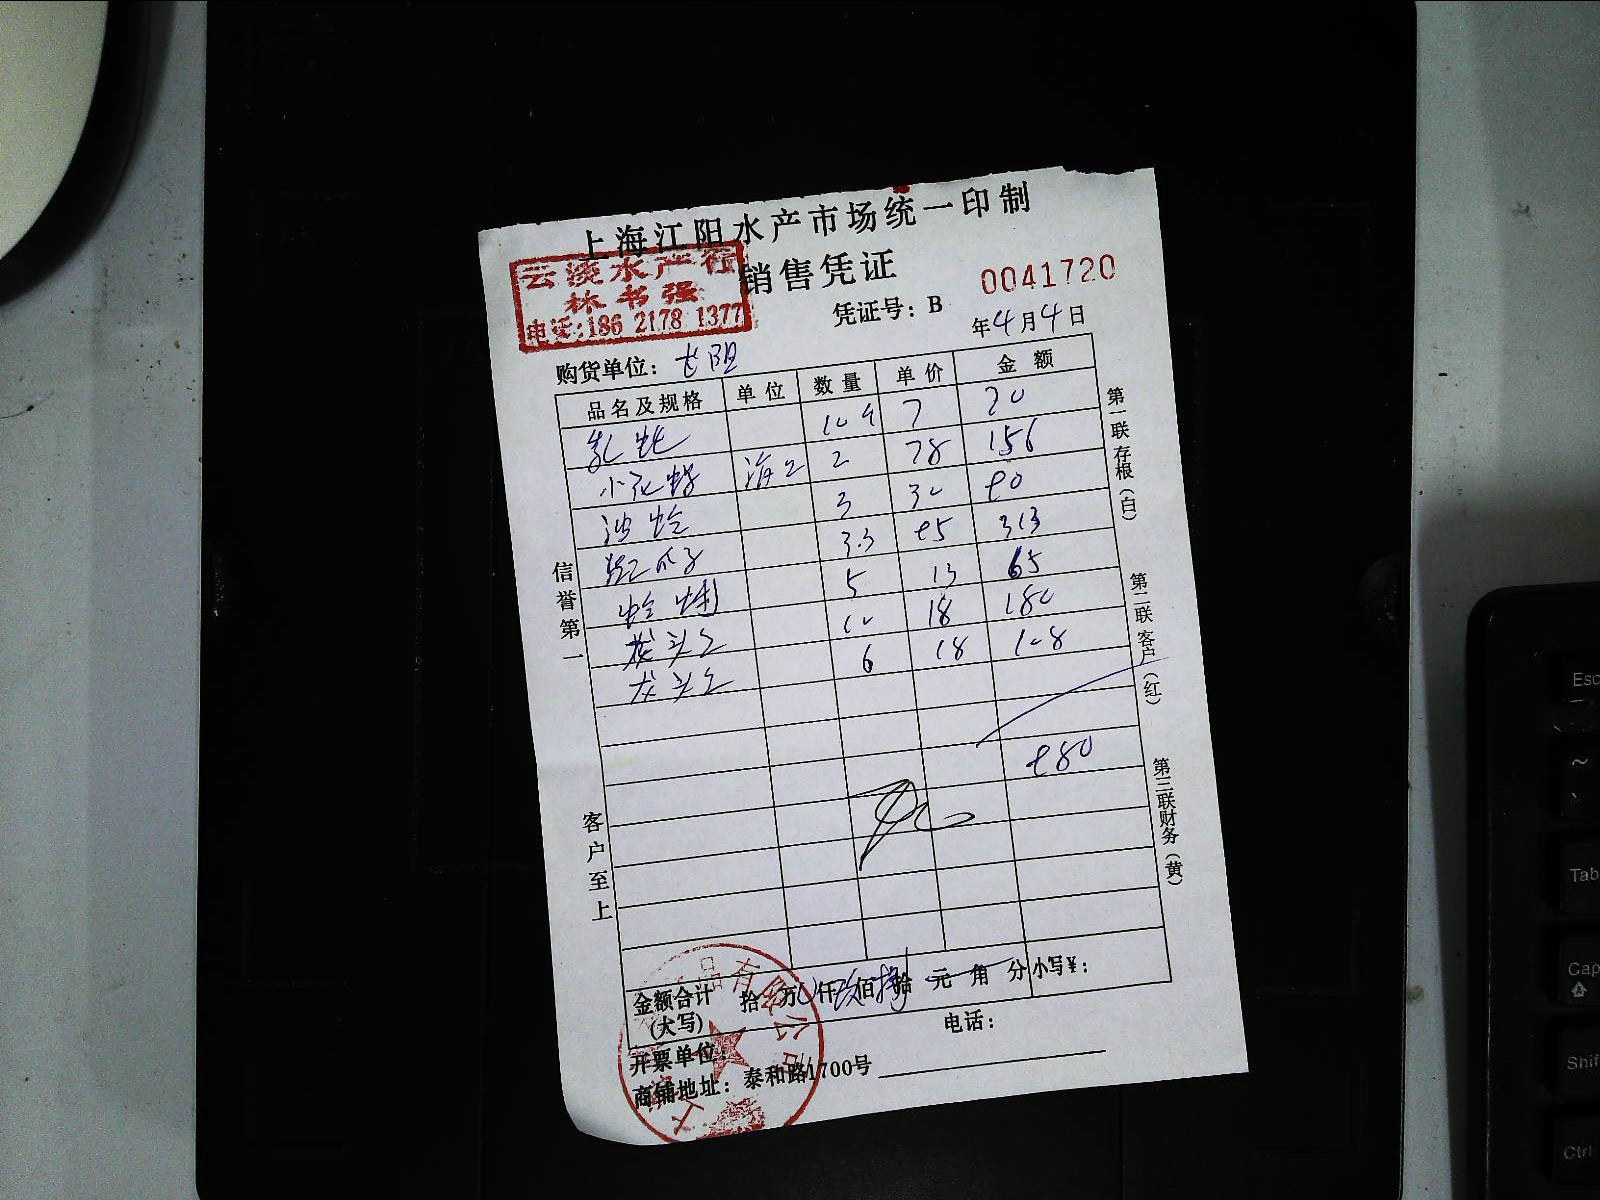 上海江阳水产市场统一印制
销售凭证
0041720
云淡水产行
林书强
电话:186 2178 1377
凭证号：B
年4月4日
购货单位：
品名及规格 单位 数量 单价 金额
乳蚝 7 70
小花螺 2 78 156
沙蛤 3 30 90
3.3 95 313
蛏 5 13 65
龙头 10 18 180
龙头 6 18 108
980
信誉第一
客户至上
第一联存根(白)
第二联客户(红)
第三联财务(黄)
金额合计(大写) 拾 万 仟 佰 拾 元 角 分 小写¥：
品有限公司
开票单位： 电话：
商铺地址：泰和路1700号
Esc
~
Tab
Cap
Shif
Ctrl